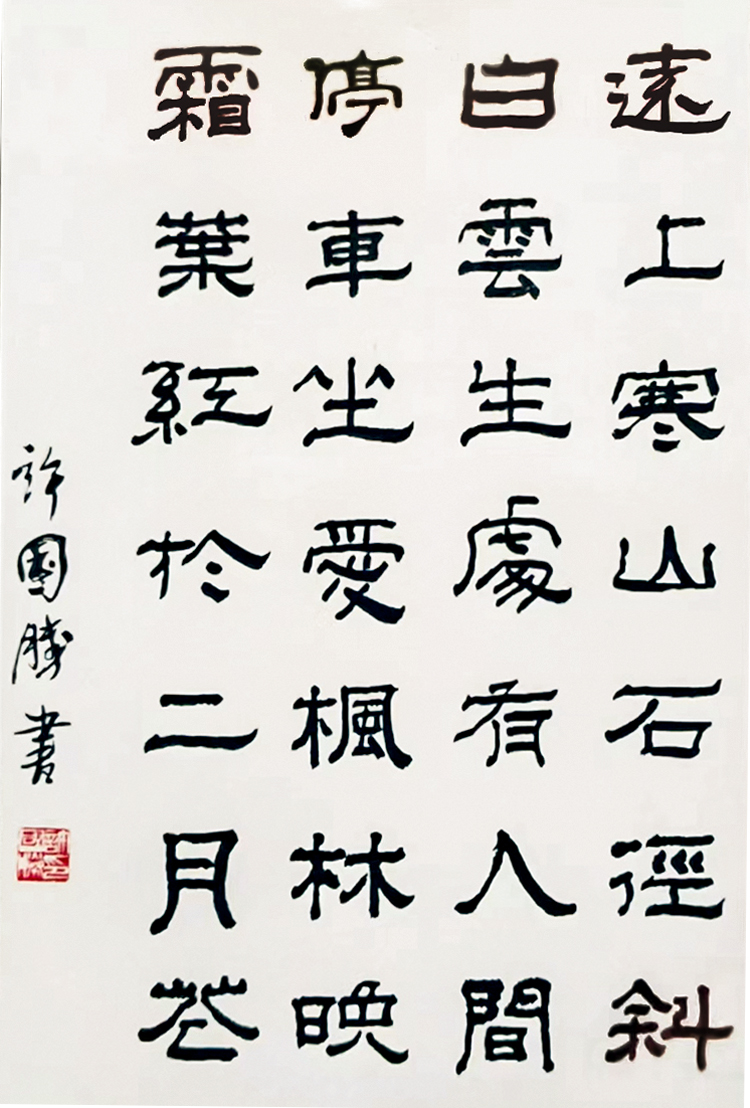 遠上寒山石徑斜
白雲生處有人間
停車坐愛楓林晚
霜葉紅於二月花
許國勝書